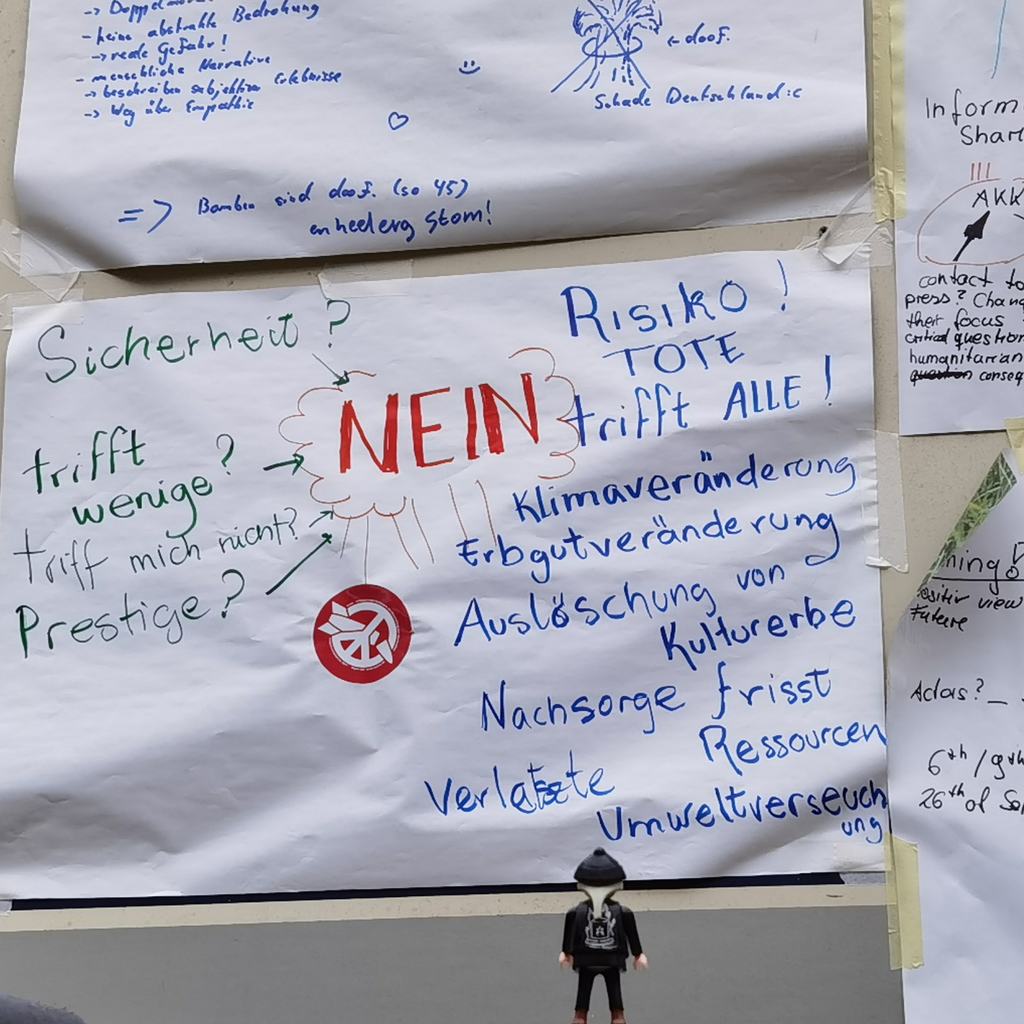 -> Doppelm
- keine abstrakte Bedrohung
-> reale Gefahr!
- menschliche Narrative
-> beschreiben subjektive Erlebnisse
-> Weg über Empathie
<- doof.
Schade Deutschland :c
=> Bomben sind doof. (so 45)
enheelerg stom!
Sicherheit?
trifft
wenige?
triff mich nicht?
Prestige?
NEIN
RISIKO!
TOTE
trifft ALLE!
Klimaveränderung
Erbgutveränderung
Auslöschung von
Kulturerbe
Nachsorge frisst
Ressourcen
Verletzte
Umweltverseuch
ung
Inform
Shar
AKK
contact to
press? Chang
their focus
critical question
humanitarian
question conseq
ning!
positiv view
Future
Adas?_
6th / 9th
26th of Se